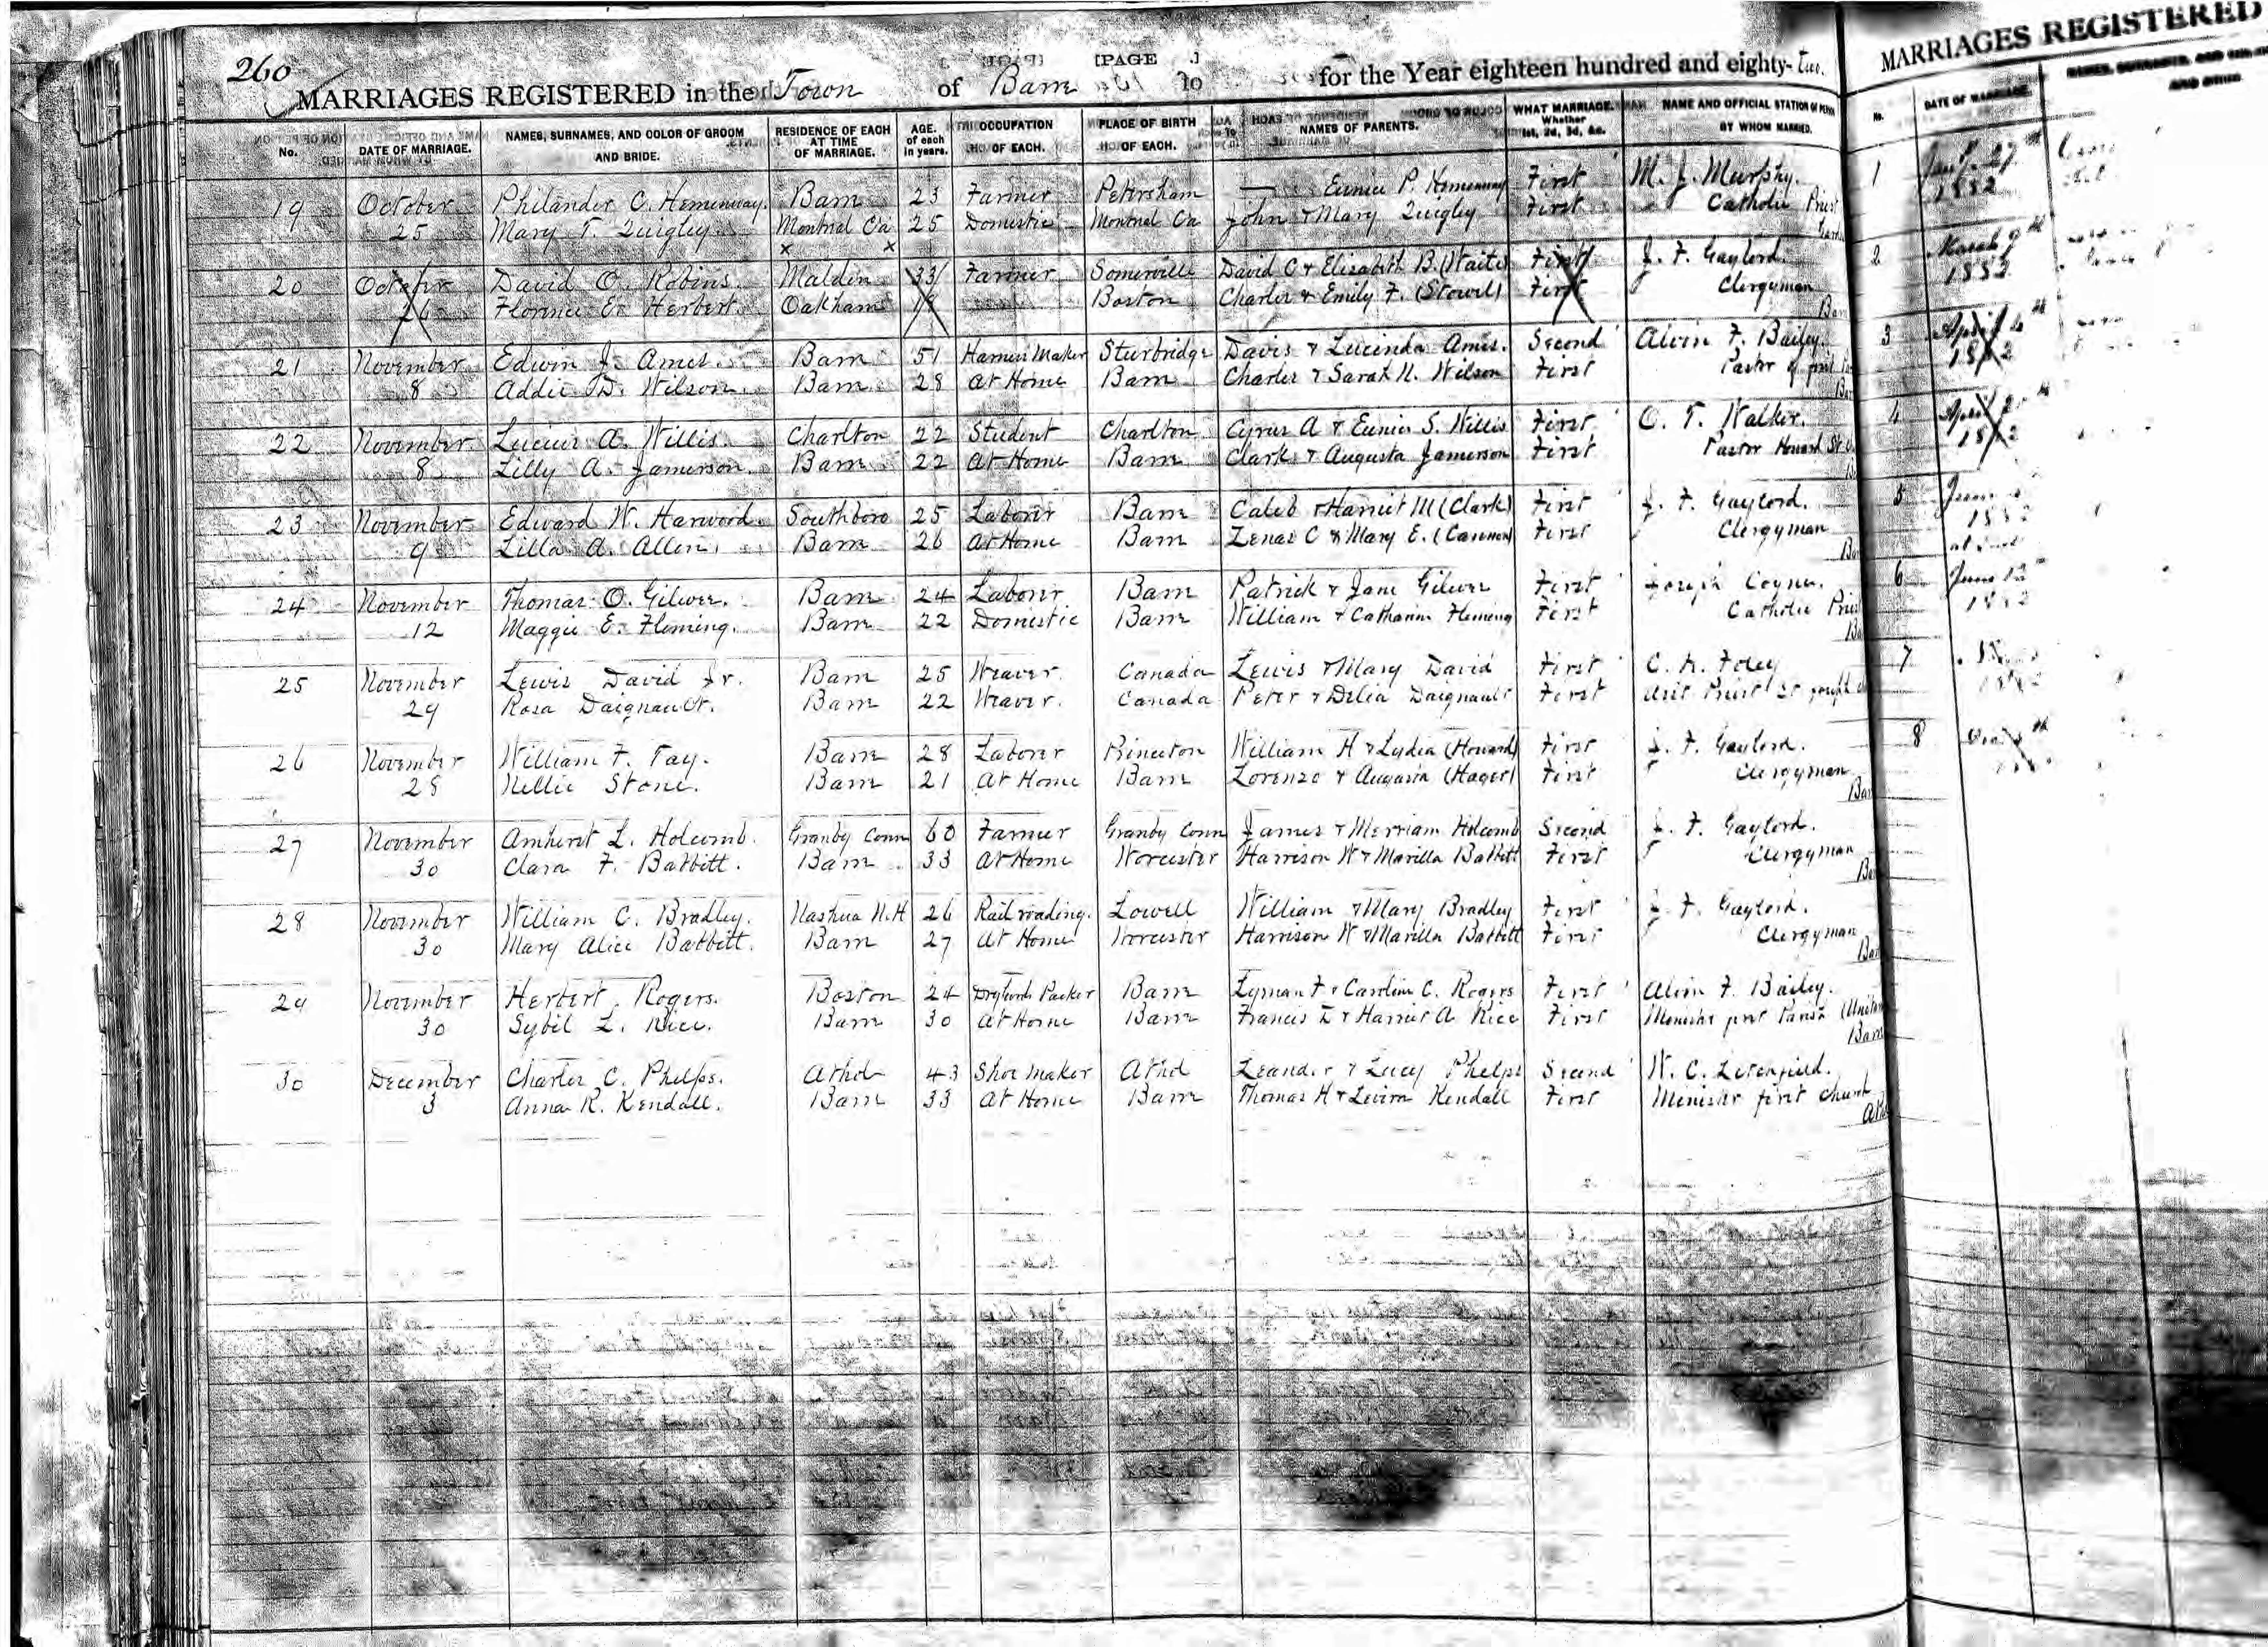 260
MARRIAGES REGISTERED in the Town of Barre for the Year eighteen hundred and eighty-two.
No. DATE OF MARRIAGE. NAMES, SURNAMES, AND COLOR OF GROOM AND BRIDE. RESIDENCE OF EACH AT TIME OF MARRIAGE. AGE. of each in years. OCCUPATION OF EACH. PLACE OF BIRTH OF EACH. NAMES OF PARENTS. WHAT MARRIAGE. Whether 1st, 2d, 3d, &c. NAME AND OFFICIAL STATION OF PERSON BY WHOM MARRIED.
19 October Philander C. Hemenway. Barre 23 Farmer Petersham — Eunice P. Hemenway First M. J. Murphy.
25 Mary T. Quigley. Montreal Ca 25 Domestic Montreal Ca John & Mary Quigley First Catholic Priest
x x
20 October David O. Robins. Malden 33 Farmer Somerville David C & Elizabeth B. (Waite) First J. F. Gaylord.
26 Florence E. Herbert. Oakham 19 Boston Charles & Emily F. (Stowell) First Clergyman
21 November Edwin J. Ames. Barre 51 Harness Maker Sturbridge Davis & Lucinda Ames. Second Alvin F. Bailey.
8 Addie D. Wilson. Barre 28 At Home Barre Charles & Sarah N. Wilson First Pastor of first
22 November Lucius A. Willis. Charlton 22 Student Charlton Cyrus A & Eunice S. Willis First C. T. Walker.
8 Lilly A. Jamerson. Barre 22 At Home Barre Clark & Augusta Jamerson First Pastor Howard St
23 November Edward W. Harwood. Southboro 25 Laborer Barre Caleb & Harriet M (Clark) First J. F. Gaylord.
9 Lilla A. Allen. Barre 26 At Home Barre Zenas C & Mary E. First Clergyman
24 November Thomas O. Gilver. Barre 24 Laborer Barre Patrick & Jane Gilver First Joseph Coyne.
12 Maggie E. Fleming. Barre 22 Domestic Barre William & Catharine Fleming First Catholic Priest
25 November Lewis David Jr. Barre 25 Weaver. Canada Lewis & Mary David First C. N. Foley
29 Rosa Daignault. Barre 22 Weaver. Canada Peter & Delia Daignault First Asst Priest St
26 November William F. Fay. Barre 28 Laborer Princeton William H & Lydia (Howard) First J. F. Gaylord.
28 Nellie Stone. Barre 21 At Home Barre Lorenzo & Augusta (Hager) First Clergyman
27 November Amherst L. Holcomb. Granby Conn 60 Farmer Granby Conn James & Merriam Holcomb Second J. F. Gaylord.
30 Clara F. Babbitt. Barre 33 At Home Worcester Harrison W & Marilla Babbitt First Clergyman
28 November William C. Bradley. Nashua N.H 26 Railroading. Lowell William & Mary Bradley First J. F. Gaylord.
30 Mary Alice Babbitt. Barre 27 At Home Worcester Harrison W & Marilla Babbitt First Clergyman
29 November Herbert Rogers. Boston 24 Packer Barre Lyman F & Caroline C. Rogers First Alvin F. Bailey.
30 Sybil L. Rice. Barre 30 At Home Barre Francis E & Harriet A Rice First Minister first Parish
30 December Charles C. Phelps. Athol 43 Shoe Maker Athol Leander & Lucy Phelps Second W. C. Litchfield.
3 Anna R. Kendall. Barre 33 At Home Barre Thomas H & Levira Kendall First Minister first church
MARRIAGES REGISTERED
No. DATE OF MARRIAGE.
1 Jany 27th
1882
2 March 9th
1882
3 April
1882
4 April
1882
5 June
1882
6 June 12
1882
7
8